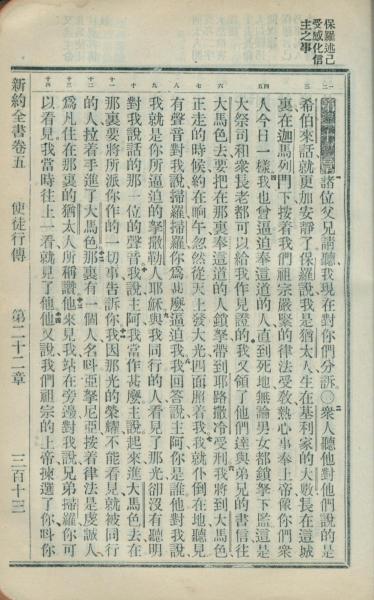 保羅述己
受感化信
主之事
諸位父兄請聽我現在對你們分訴○衆人聽他對他們說的是
希伯來話就更加安靜了保羅說我是猶太人生在基利家的大數長在這城
裏在迦馬列門下按着我們祖宗嚴緊的律法受敎熱心事奉上帝像你們衆
人今日一樣我也曾逼迫奉這道的人直到死地無論男女都鎖拏下監這是
大祭司和衆長老都可以給我作見證的我又領了他們達與弟兄的書信往
大馬色去要把在那裏奉這道的人鎖拏帶到耶路撒冷受刑我將到大馬色
正走的時候約在晌午忽然從天上發大光四面照着我我就仆倒在地聽見
有聲音對我說掃羅掃羅你爲甚麽逼迫我我回答說主阿你是誰他對我說
我就是你所逼迫的拏撒勒人耶穌與我同行的人看見了那光卻沒有聽明
對我說話的那一位的聲音我說主阿我當作甚麽主說起來進大馬色去在
那裏要將所派你作的一切事告訴你我因那光的榮耀不能看見就被同行
的人拉着手進了大馬色那裏有一個人名呌亞拏尼亞按着律法是虔誠人
爲凡住在那裏的猶太人所稱讚他來見我站在旁邊對我說兄弟掃羅你可
以看見我當時往上一看就見了他他又說我們祖宗的上帝揀選了你呌你
新約全書卷五　使徒行傳　第二十二章　三百十三